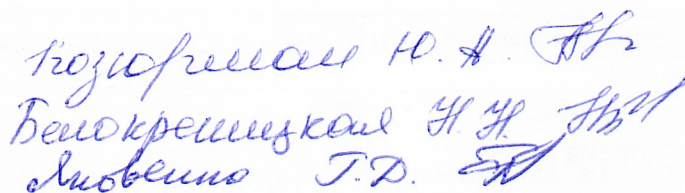 Козюрман Ю. А.
Белокреницкая Н. Н.
Яковенко Г. Д.